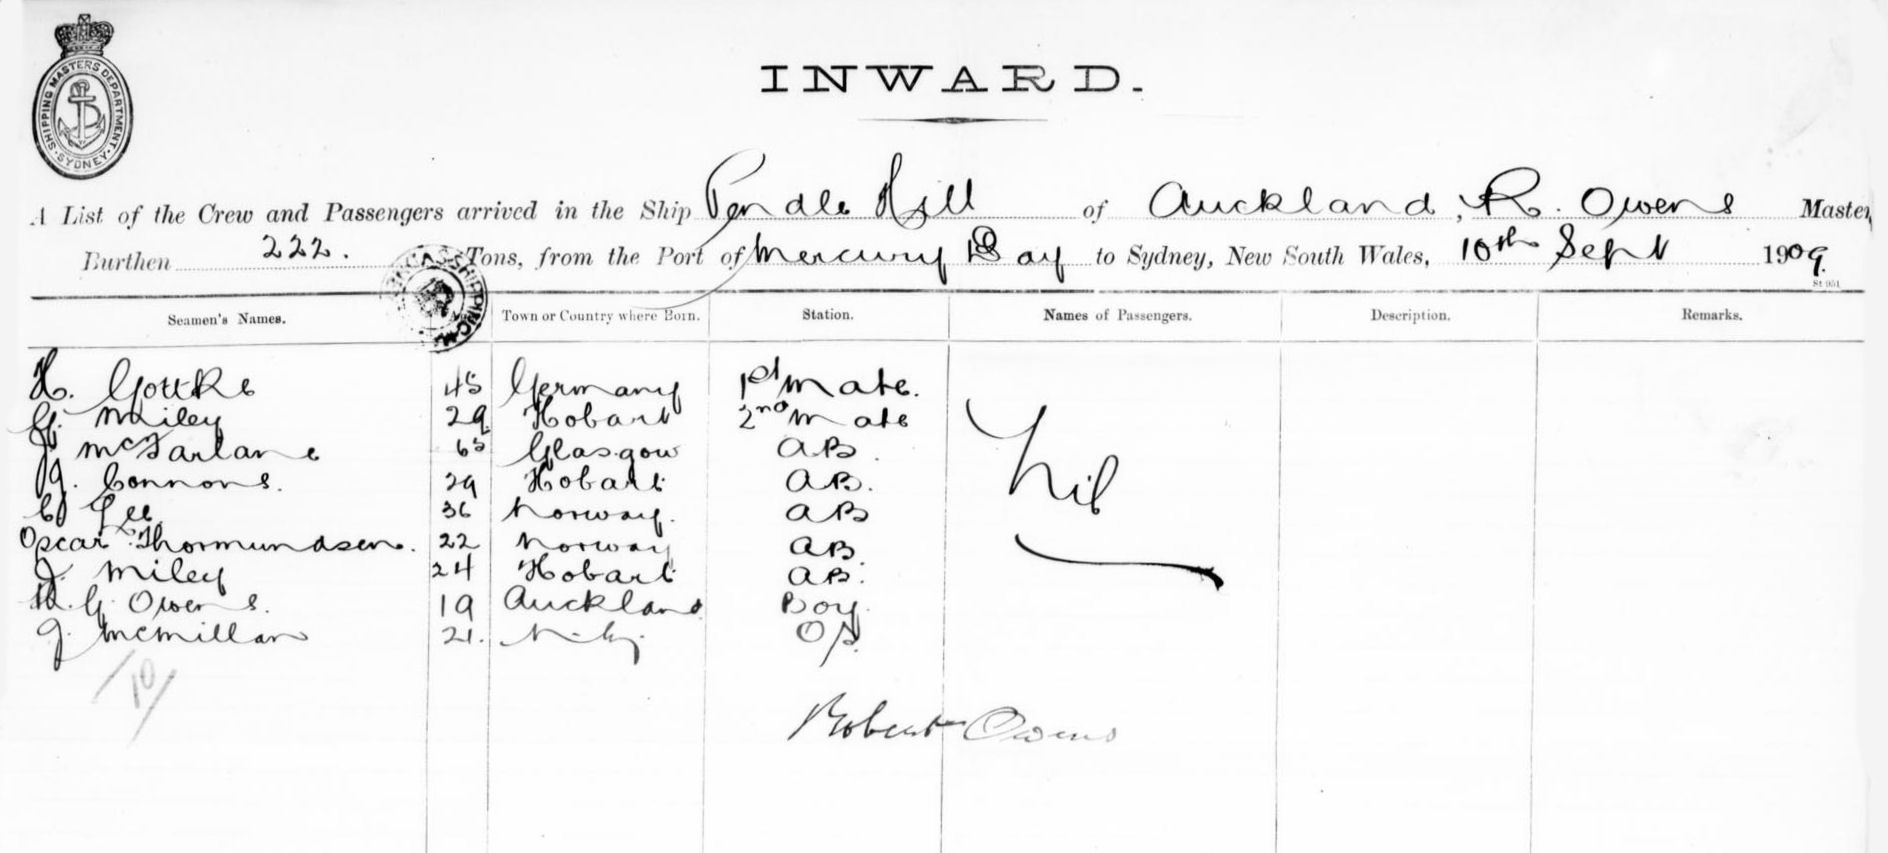 SHIPPING MASTERS DEPARTMENT
SYDNEY
INWARD.
A List of the Crew and Passengers arrived in the Ship Pendle Hill of Auckland, R. Owens Master,
Burthen 222. Tons, from the Port of Mercury Bay to Sydney, New South Wales, 10th Sept 1909.
St 951
Seamen's Names. Town or Country where Born. Station. Names of Passengers. Description. Remarks.
H. 45 Germany 1st mate.
Miley 29 Hobart 2nd mate
McFarlane 65 Glasgow AB.
J. Connons. 29 Hobart AB.
C Lee 36 Norway. AB
Oscar Thormundsen. 22 Norway AB
J. Miley 24 Hobart AB.
G. Owens. 19 Auckland Boy.
J. McMillan 21. OS.
Nil
10/
Robert Owens